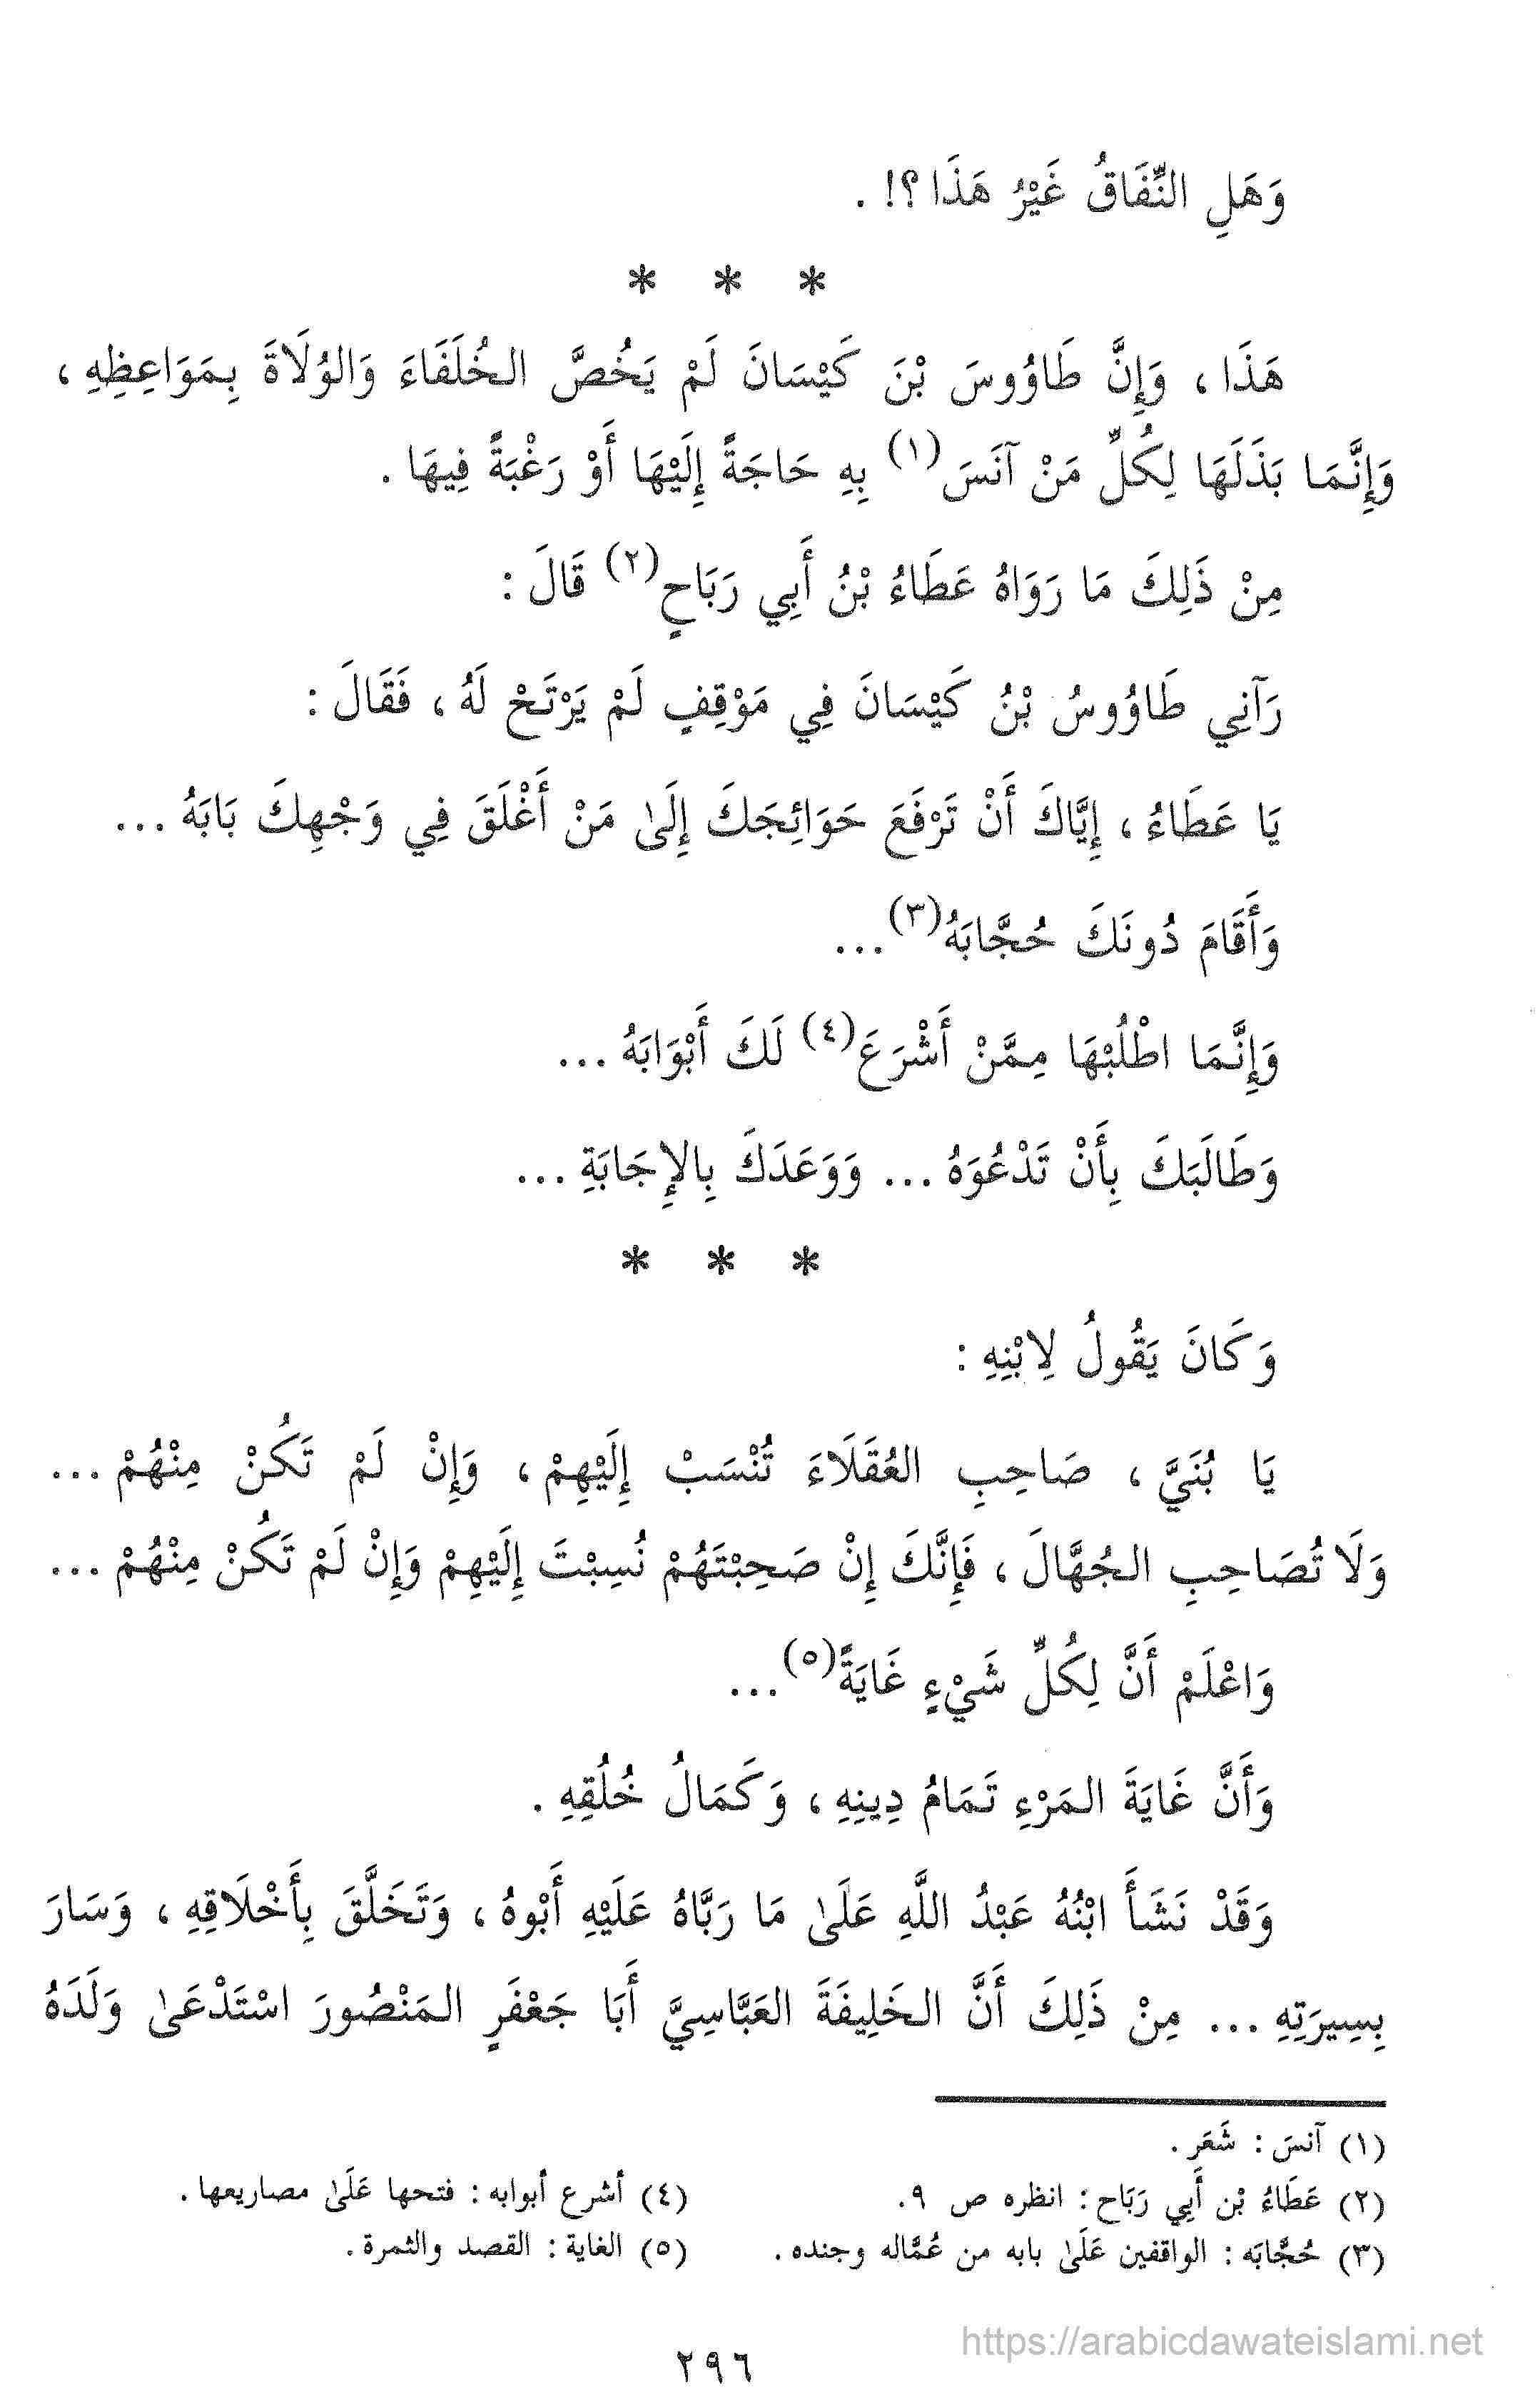 وَهَلِ النِّفَاقُ غَيْرُ هَذَا ؟! .
* * *
هَذَا ، وَإِنَّ طَاوُوسَ بْنَ كَيْسَانَ لَمْ يَخُصَّ الخُلَفَاءَ وَالوُلَاةَ بِمَوَاعِظِهِ ،
وَإِنَّمَا بَذَلَهَا لِكُلِّ مَنْ آنَسَ (١) بِهِ حَاجَةً إِلَيْهَا أَوْ رَغْبَةً فِيهَا .
مِنْ ذَلِكَ مَا رَوَاهُ عَطَاءُ بْنُ أَبِي رَبَاحٍ (٢) قَالَ :
رَآنِي طَاوُوسُ بْنُ كَيْسَانَ فِي مَوْقِفٍ لَمْ يَرْتَحْ لَهُ ، فَقَالَ :
يَا عَطَاءُ ، إِيَّاكَ أَنْ تَرْفَعَ حَوَائِجَكَ إِلَىٰ مَنْ أَغْلَقَ فِي وَجْهِكَ بَابَهُ ...
وَأَقَامَ دُونَكَ حُجَّابَهُ (٣) ...
وَإِنَّمَا اطْلُبْهَا مِمَّنْ أَشْرَعَ (٤) لَكَ أَبْوَابَهُ ...
وَطَالَبَكَ بِأَنْ تَدْعُوَهُ ... وَوَعَدَكَ بِالإِجَابَةِ ...
* * *
وَكَانَ يَقُولُ لِابْنِهِ :
يَا بُنَيَّ ، صَاحِبِ العُقَلَاءَ تُنْسَبْ إِلَيْهِمْ ، وَإِنْ لَمْ تَكُنْ مِنْهُمْ ...
وَلَا تُصَاحِبِ الجُهَّالَ ، فَإِنَّكَ إِنْ صَحِبْتَهُمْ نُسِبْتَ إِلَيْهِمْ وَإِنْ لَمْ تَكُنْ مِنْهُمْ ...
وَاعْلَمْ أَنَّ لِكُلِّ شَيْءٍ غَايَةً (٥) ...
وَأَنَّ غَايَةَ المَرْءِ تَمَامُ دِينِهِ ، وَكَمَالُ خُلُقِهِ .
وَقَدْ نَشَأَ ابْنُهُ عَبْدُ اللَّهِ عَلَىٰ مَا رَبَّاهُ عَلَيْهِ أَبُوهُ ، وَتَخَلَّقَ بِأَخْلَاقِهِ ، وَسَارَ
بِسِيرَتِهِ ... مِنْ ذَلِكَ أَنَّ الخَلِيفَةَ العَبَّاسِيَّ أَبَا جَعْفَرٍ المَنْصُورَ اسْتَدْعَىٰ وَلَدَهُ
(١) آنسَ : شَعَر .
(٢) عَطَاءُ بْن أَبِي رَبَاح : انظره ص ٩.
(٣) حُجَّابَه : الواقفين عَلَىٰ بابه من عُمَّاله وجنده .
(٤) أشرع أبوابه : فتحها عَلَىٰ مصاريعها .
(٥) الغاية : القصد والثمرة .
٢٩٦
https://arabicdawateislami.net